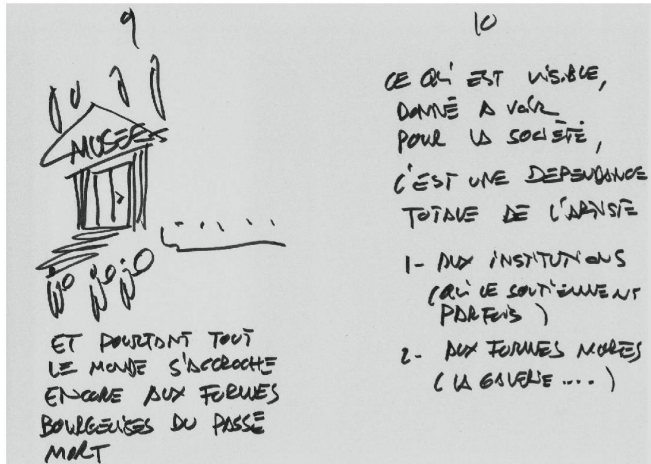 9
MUSEE
ET POURTANT TOUT
LE MONDE S'ACCROCHE
ENCORE AUX FORMES
BOURGEOISES DU PASSÉ
MORT
10
CE QUI EST VISIBLE,
DONNÉ A VOIR
POUR LA SOCIÉTÉ,
C'EST UNE DEPENDANCE
TOTALE DE L'ARTISTE
1- AUX INSTITUTIONS
(QUI LE SOUTIENNENT
PARFOIS)
2- AUX FORMES MORTES
(LA GALERIE ....)